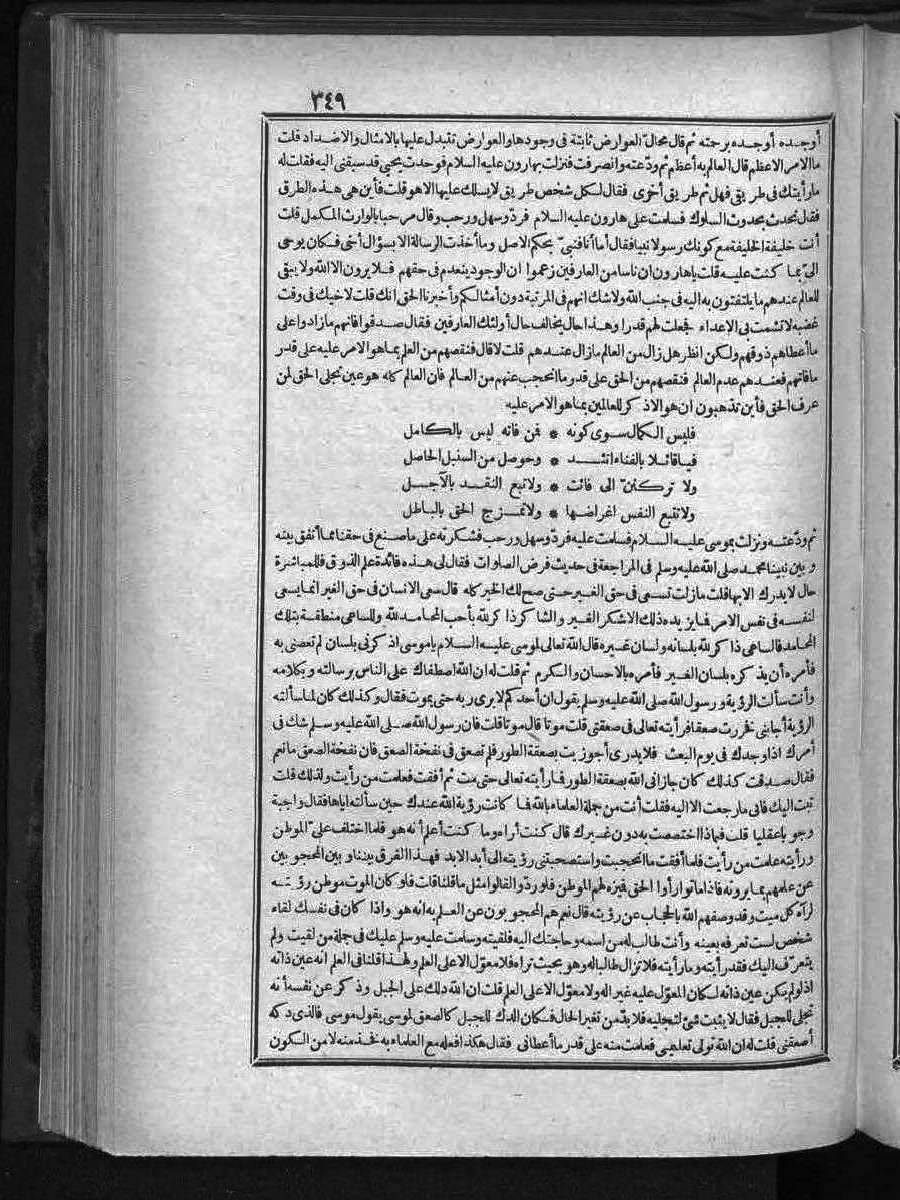 ٣٤٩
أوجده أوجده برحته ثم قال محال العوارض ثابتة فى وجودها والعوارض تتبدل عليها بالامثال والاضداد قلت
ما الامر الاعظم قال العالم به أعظم ثم ودّعته وانصرفت فنزلت بهارون عليه السلام فوجدت يحيى قد سبقنى اليه فقلت له
مارأيتك فى طريقى فهل ثم طريق أخرى فقال لكل شخص طريق لا يسلك عليها الا هو قلت فأين هى هذه الطرق
فقال تحدث بحدوث السلوك فسلمت على هارون عليه السلام فردّ وسهل ورحب وقال مرحبا بالوارث المكمل قلت
أنت خليفة الخليفة مع كونك رسولا نبيا فقال أما أنا فنبىّ بحكم الاصل وما أخذت الرسالة الا بسؤال أخى فكان يوحى
الىّ بما كنت عليه قلت ياهارون ان ناسا من العارفين زعموا ان الوجود ينعدم فى حقهم فلا يرون الا الله ولا يبقى
للعالم عندهم ما يلتفتون به اليه فى جنب الله ولا شك انهم فى المرتبة دون أمثالكم وأخبرنا الحق انك قلت لاخيك فى وقت
غضبه لا تشمت بى الاعداء فجعلت لهم قدرا وهذا حال يخالف حال أولئك العارفين فقال صدقوا فانهم مازادوا على
ما أعطاهم ذوقهم ولكن انظر هل زال من العالم مازال عندهم قلت لا قال فنقصهم من العلم بما هو الامر عليه على قدر
مافاتهم فعندهم عدم العالم فنقصهم من الحق على قدر ما انحجب عنهم من العالم فان العالم كله هو عين تجلى الحق لمن
عرف الحق فأين تذهبون ان هو الا ذكر للعالمين بما هو الامر عليه
فليس الكمال سوى كونه * فمن فاته ليس بالكامل
فياقائلا بالفناء اتئد * وحوصل من السنبل الحاصل
ولا تركنن الى فائت * ولا تبع النقد بالآجل
ولا تتبع النفس اغراضها * ولا تمزج الحق بالباطل
ثم ودّعته ونزلت بموسى عليه السلام فسلمت عليه فردّ وسهل ورحب فشكرته على ماصنع فى حقنا مما أتفق بينه
وبين نبينا محمد صلى الله عليه وسلم فى المراجعة فى حديث فرض الصلوات فقال لى هذه فائدة علم الذوق فللمباشرة
حال لا يدرك الا بها قلت مازلت تسعى فى حق الغير حتى صح لك الخير كله قال سعى الانسان فى حق الغير انما يسعى
لنفسه فى نفس الامر فما يزيده ذلك الا شكر الغير والشاكر ذاكر لله بأحب المحامد لله والساعى منطقه بتلك
المحامد فالساعى ذاكر لله بلسانه ولسان غيره قال الله تعالى لموسى عليه السلام ياموسى اذكرنى بلسان لم تعصنى به
فأمره أن يذكره بلسان الغير فأمره بالاحسان والكرم ثم قلت له ان الله اصطفاك على الناس برسالته وبكلامه
وأنت سألت الرؤية ورسول الله صلى الله عليه وسلم يقول ان أحدكم لا يرى ربه حتى يموت فقال وكذلك كان لما سألته
الرؤية أجابنى فخررت صعقا فرأيته تعالى فى صعقتى قلت موتا قال موتا قلت فان رسول الله صلى الله عليه وسلم شك فى
أمرك اذا وجدك فى يوم البعث فلا يدرى أجوزيت بصعقة الطور فلم تصعق فى نفخة الصعق فان نفخة الصعق ماتعم
فقال صدقت كذلك كان جازانى الله بصعقة الطور فما رأيته تعالى حتى مت ثم أفقت فعلمت من رأيت ولذلك قلت
تبت اليك فانى مارجعت الا اليه فقلت أنت من جملة العلماء بالله فما كانت رؤية الله عندك حين سألته اياها فقال واجبة
وجوبا عقليا قلت فبماذا اختصصت به دون غيرك قال كنت أراه وما كنت أعلم أنه هو فلما اختلف علىّ الموطن
ورأيته علمت من رأيت فلما أفقت ما انحجبت واستصحبتنى رؤيته الى أبد الابد فهذا الفرق بيننا وبين المحجوبين
عن علمهم بما يرونه فاذا ماتوا رأوا الحق فميزه لهم الموطن فلو ردّوا لقالوا مثل ماقلنا قلت فلو كان الموت موطن رؤيته
لرآه كل ميت وقد وصفهم الله بالحجاب عن رؤيته قال نعم هم المحجوبون عن العلم به انه هو واذا كان فى نفسك لقاء
شخص لست تعرفه بعينه وأنت طالب له من اسمه وحاجتك اليه فلقيته وسلمت عليه وسلم عليك فى جملة من لقيت ولم
يتعرّف اليك فقد رأيته ومارأيته فلا تزال طالبا له وهو بحيث تراه فلا معوّل الا على العلم ولهذا قلنا فى العلم انه عين ذاته
اذ لو لم يكن عين ذاته لكان المعوّل عليه غير اله ولا معوّل الا على العلم قلت ان الله دلك على الجبل وذكر عن نفسه أنه
تجلى للجبل فقال لا يثبت شئ لتجليه فلا بدّ من تغير الحال فكان الدك للجبل كالصعق لموسى يقول موسى فالذى دكه
أصعقنى قلت له ان الله تولى تعليمى فعلمت منه على قدر ما أعطانى فقال هكذا فعله مع العلماء به فخذ منه لا من الكون